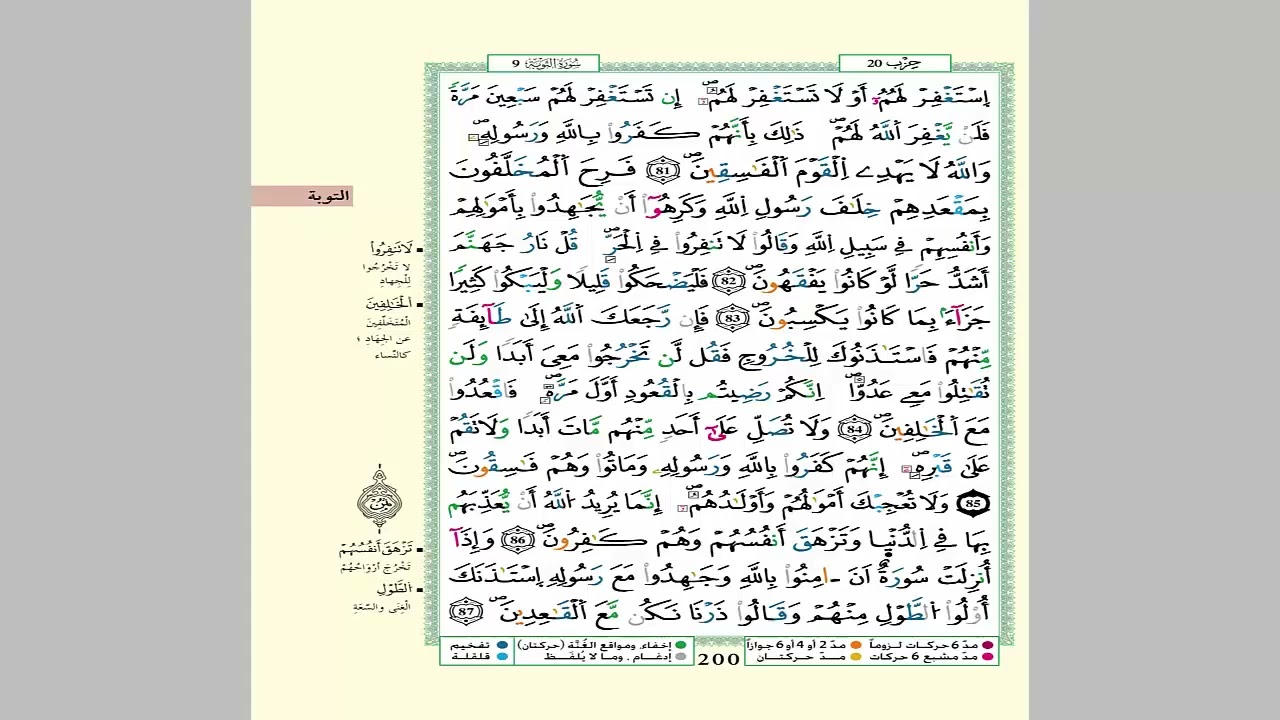 سُورَةُ التَّوْبَة 9
حِزْب 20
اِسْتَغْفِرْ لَهُمُۥٓ أَوْ لَا تَسْتَغْفِرْ لَهُمُۥٓ إِن تَسْتَغْفِرْ لَهُمْ سَبْعِينَ مَرَّةً
فَلَنْ يَّغْفِرَ اَ۬للَّهُ لَهُمْ ذَٰلِكَ بِأَنَّهُمْ كَفَرُوا بِاللَّهِ وَرَسُولِهِۦ
وَاللَّهُ لَا يَهْدِے اِ۬لْقَوْمَ اَ۬لْفَٰسِقِينَ 81 فَرِحَ اَ۬لْمُخَلَّفُونَ
بِمَقْعَدِهِمْ خِلَٰفَ رَسُولِ اِ۬للَّهِ وَكَرِهُوٓا أَنْ يُّجَٰهِدُوا بِأَمْوَٰلِهِمْ
وَأَنفُسِهِمْ فِے سَبِيلِ اِ۬للَّهِ وَقَالُوا لَا تَنفِرُوا فِے اِ۬لْحَرِّ قُلْ نَارُ جَهَنَّمَ
أَشَدُّ حَرّٗا لَّوْ كَانُوا يَفْقَهُونَ 82 فَلْيَضْحَكُوا قَلِيلٗا وَلْيَبْكُوا كَثِيرٗا
جَزَآءَۢ بِمَا كَانُوا يَكْسِبُونَ 83 فَإِن رَّجَعَكَ اَ۬للَّهُ إِلَىٰ طَآئِفَةٖ
مِّنْهُمْ فَاسْتَـٔۡذَنُوكَ لِلْخُرُوجِ فَقُل لَّن تَخْرُجُوا مَعِىَ أَبَدٗا وَلَن
تُقَٰتِلُوا مَعِے عَدُوّٗا اِنَّكُمْ رَضِيتُم بِالْقُعُودِ أَوَّلَ مَرَّةٖ فَاقْعُدُوا
مَعَ اَ۬لْخَٰلِفِينَ 84 وَلَا تُصَلِّ عَلَىٰٓ أَحَدٖ مِّنْهُم مَّاتَ أَبَدٗا وَلَا تَقُمْ
عَلَىٰ قَبْرِهِۦٓ إِنَّهُمْ كَفَرُوا بِاللَّهِ وَرَسُولِهِۦ وَمَاتُوا وَهُمْ فَٰسِقُونَ
85 وَلَا تُعْجِبْكَ أَمْوَٰلُهُمْ وَأَوْلَٰدُهُمُۥٓ إِنَّمَا يُرِيدُ اُ۬للَّهُ أَنْ يُّعَذِّبَهُم
بِهَا فِے اِ۬لدُّنْيِا وَتَزْهَقَ أَنفُسُهُمْ وَهُمْ كَٰفِرُونَ 86 وَإِذَآ
أُنزِلَتْ سُورَةٌ اَنَ اٰمِنُوا بِاللَّهِ وَجَٰهِدُوا مَعَ رَسُولِهِ اِ۪سْتَـٔۡذَنَكَ
أُوْلُوا اُ۬لطَّوْلِ مِنْهُمْ وَقَالُوا ذَرْنَا نَكُن مَّعَ اَ۬لْقَٰعِدِينَ 87
التوبة
لَا تَنفِرُوا
لا تَخْرُجُوا
لِلْجِهادِ
اَلْخَٰلِفِينَ
الْمُتَخَلِّفِينَ
عن الجِهَادِ ؛
كالنِّساء
ثمن
تَزْهَقَ أَنفُسُهُمْ
تَخْرُجَ أَرْوَاحُهُمْ
اَلطَّوْلِ
الْغِنَى والسَّعَةِ
مدّ 6 حركات لـزوماً
مدّ مشبع 6 حركات
مدّ 2 أو 4 أو 6 جوازاً
مــدّ حركتــان
200
إخفاء، ومواقع الغُنَّة (حركتان)
إدغـام ، ومـا لا يُلفَـظ
تفخيم
قلقلة